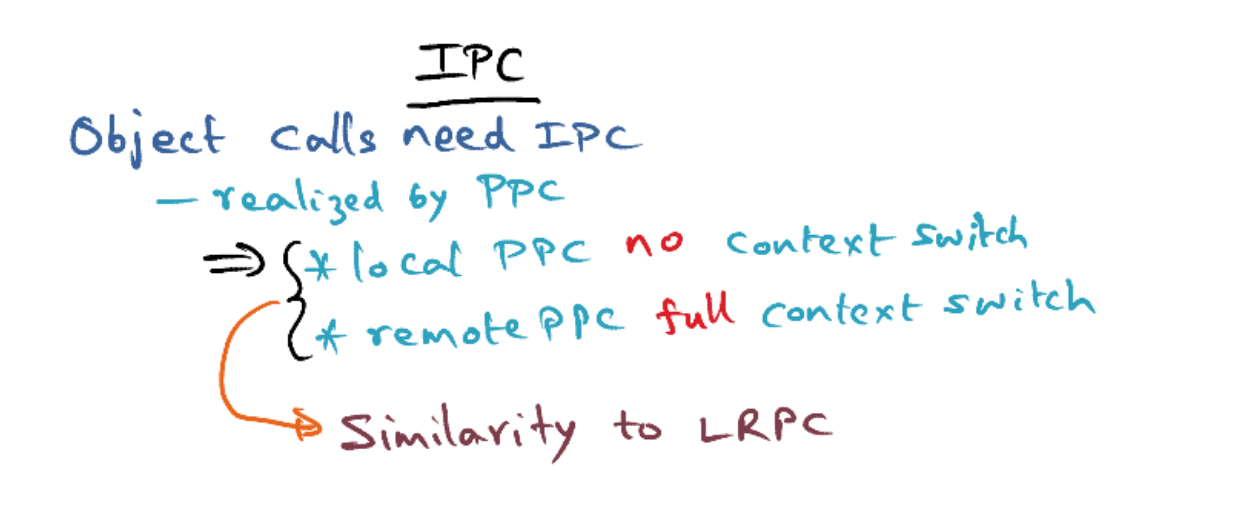 IPC
Object calls need IPC
— realized by PPC
⇒ { * local PPC no context switch
* remote PPC full context switch
Similarity to LRPC